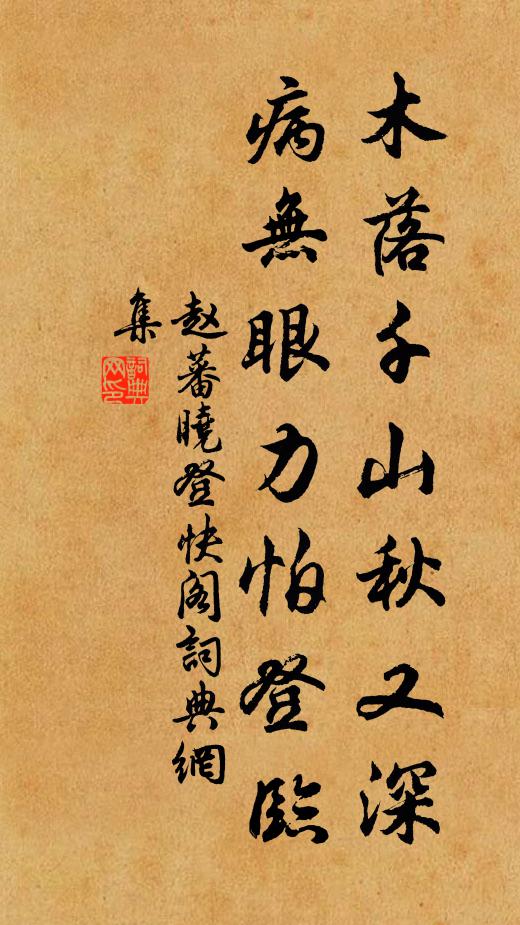 木落千山秋又深
病無眼力怕登臨
赵蕃曉登快阁詞典網
集
詞典
网印